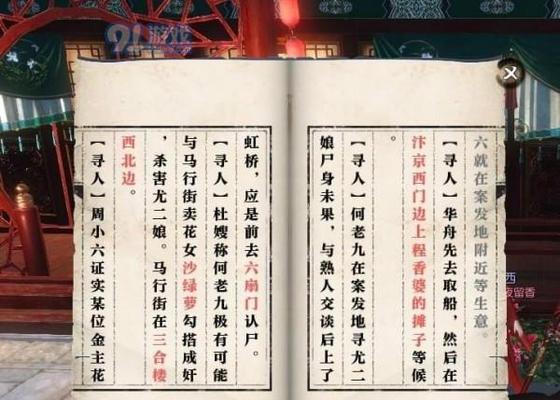 六就在案发地附近等生意。
【寻人】华舟先去取船，然后在
汴京西门边上程香婆的摊子等候
。
【寻人】何老九在案发地寻尤二
娘尸身未果，与熟人交谈后上了
虹桥，应是前去六扇门认尸。
【寻人】杜嫂称何老九极有可能
与马行街卖花女沙绿萝勾搭成奸
，杀害尤二娘。马行街在三合楼
西北边。
【寻人】周小六证实某位金主花
91游戏
西
夜留香